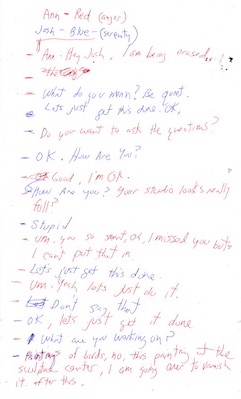 Ann - Red (anger)
Josh - Blue - (serenity)
- Ann: Hey Josh, I am being erased..!
- What do you mean? Be quiet.
Lets just get this done. OK,
- Do you want to ask the questions?
- OK. How Are You?
- Good, I'm OK.
How Are you? Your studio looks really
full?
- Stupid
- um. you so smart, oh, I missed you but
I can't put that in.
- Let's just get this done.
- um. Yeah lets just do it.
- Don't say that
- OK, lets just get it done
- What are you working on?
- Painting of birds, no, this painting at the
center, I am going over to varnish
it after this.